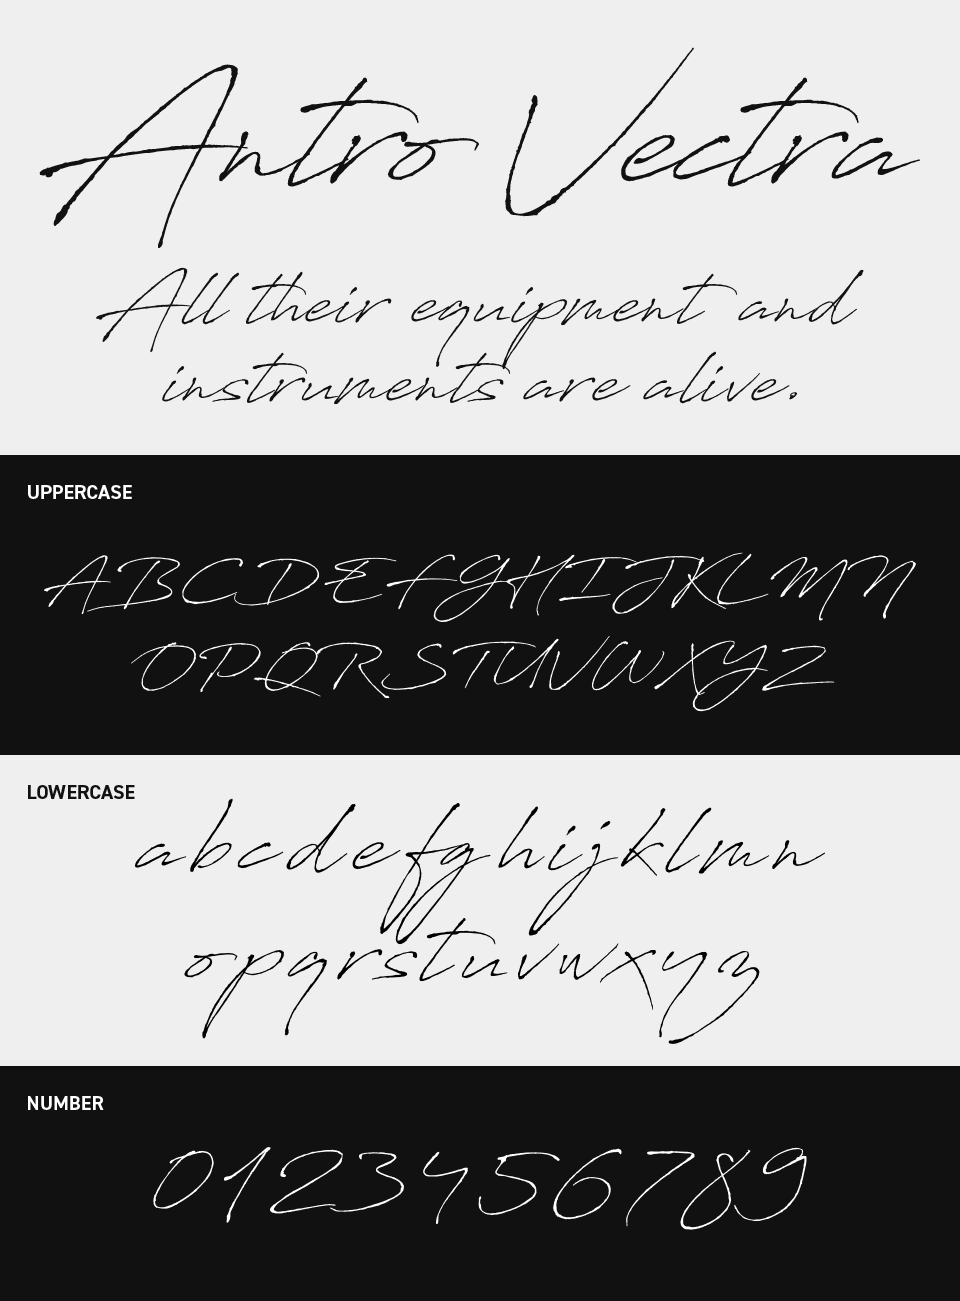 Antro Vectra
All their equipment and
instruments are alive.
UPPERCASE
ABCDEFGHIJKLMN
OPQRSTUVWXYZ
LOWERCASE
abcdefghijklmn
opqrstuvwxyz
NUMBER
0123456789